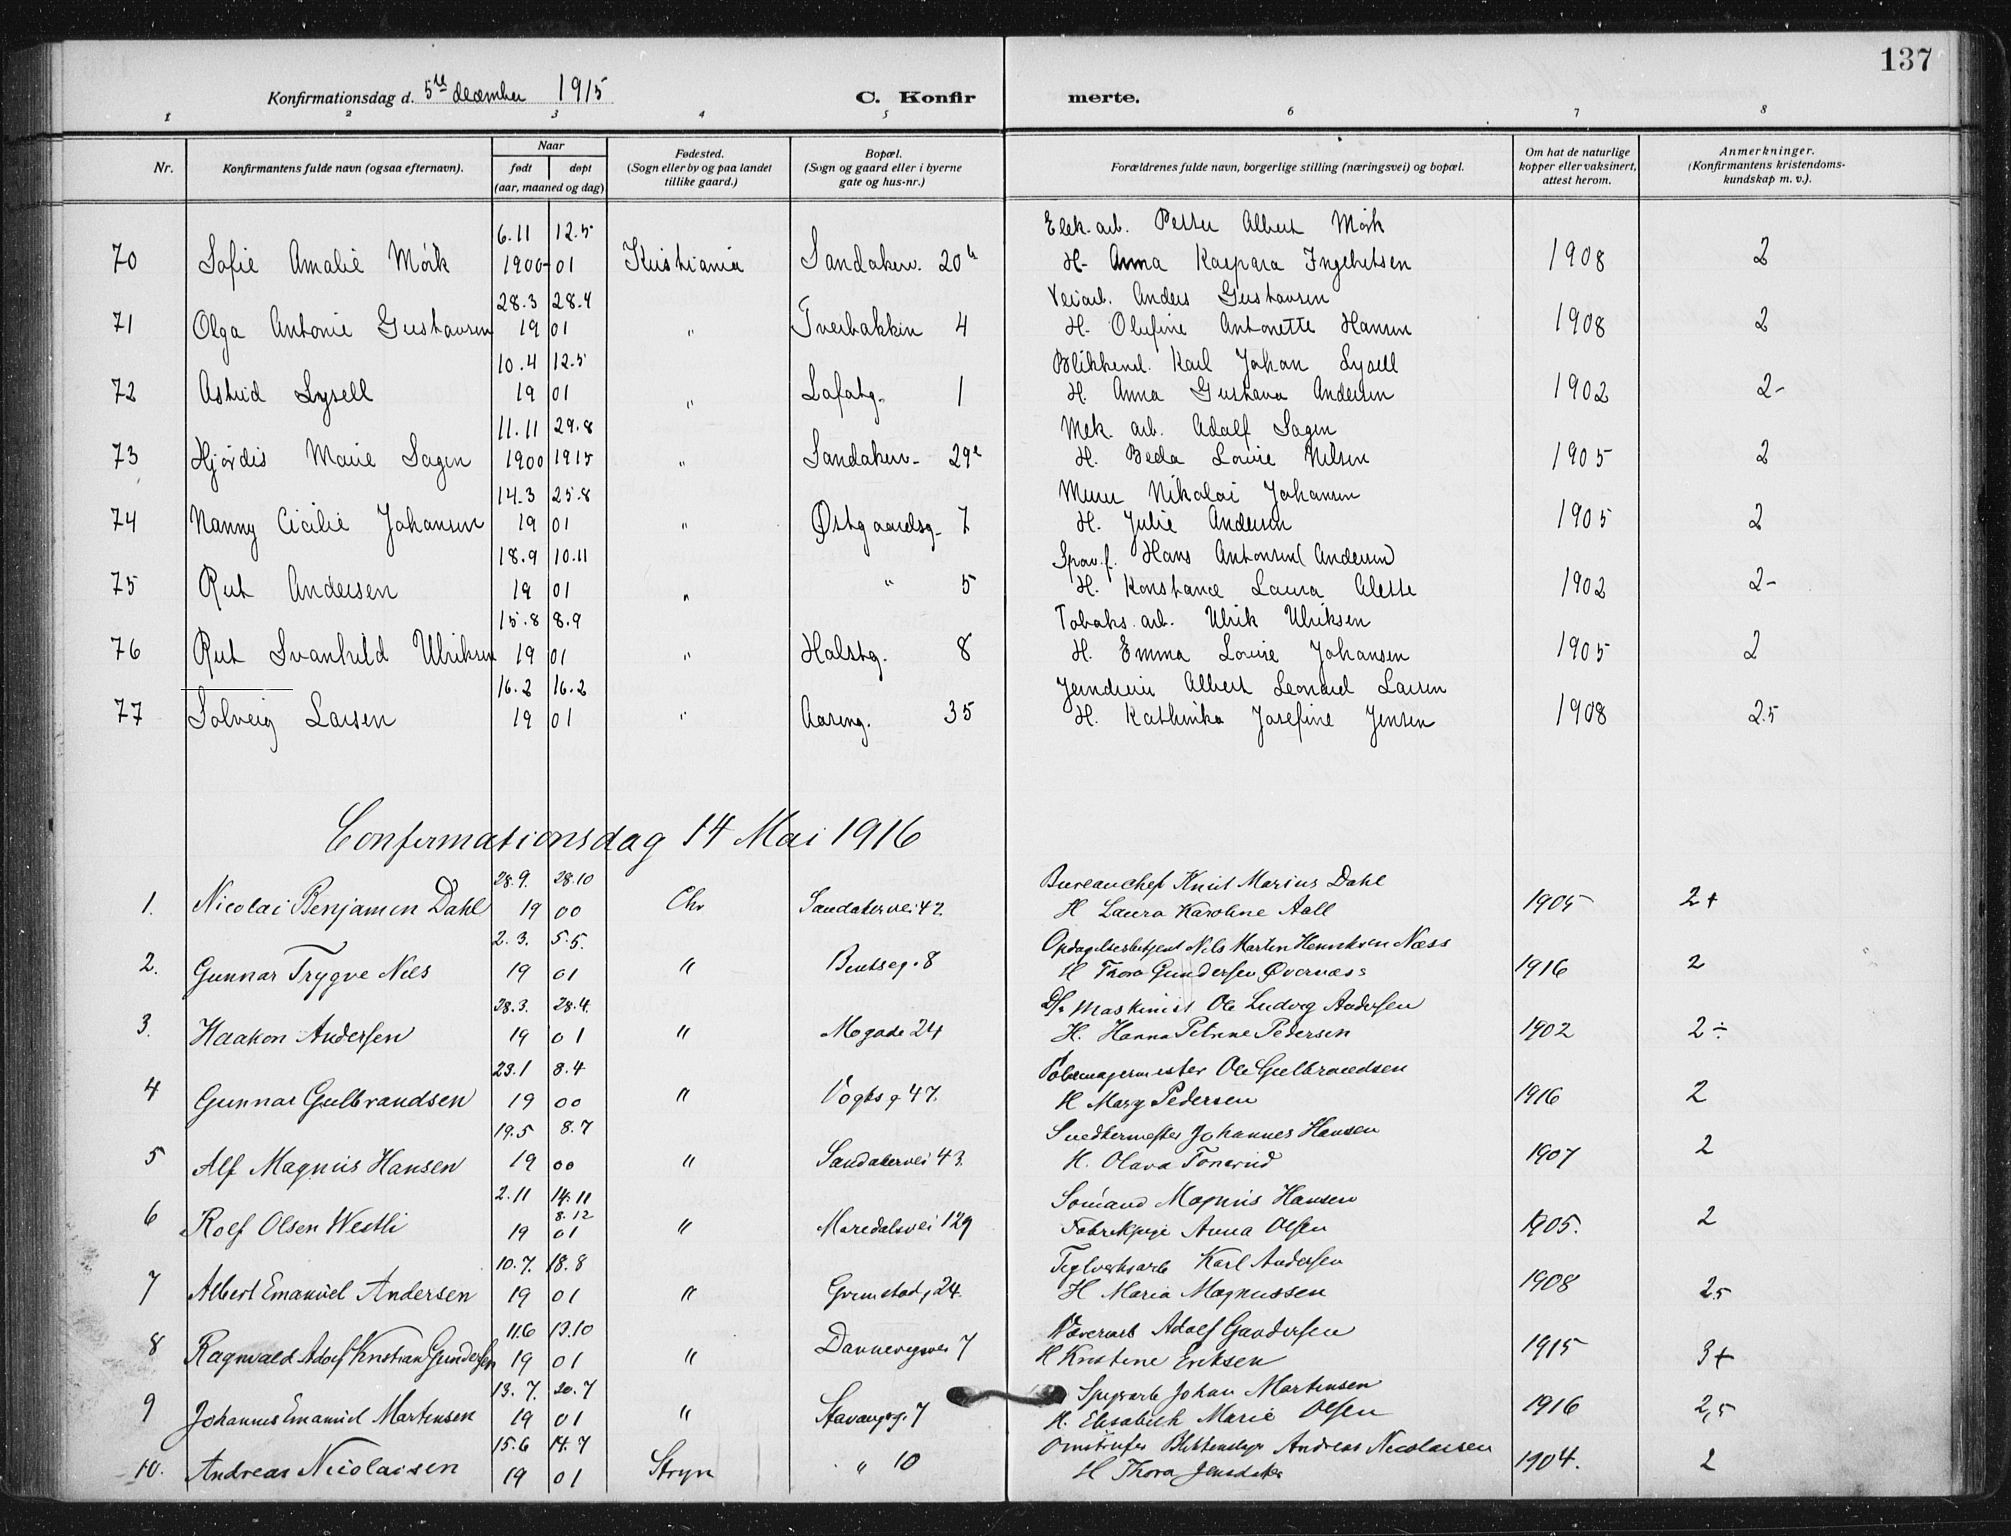 137
Konfirmationsdag d. 5te december 1915 C. Konfirmerte.
1 2 3 4 5 6 7 8
Nr. Konfirmantens fulde navn (ogsaa efternavn). Naar født døpt (aar, maaned og dag) Fødested. (Sogn eller by og paa landet tillike gaard.) Bopæl. (Sogn og gaard eller i byerne gate og hus-nr.) Forældrenes fulde navn, borgerlige stilling (næringsvei) og bopæl. Om hat de naturlige kopper eller vaksinert, attest herom. Anmerkninger. (Konfirmantens kristendoms-kundskap m. v.).
6.11 12.5 Elek. arb. Petter Albert Mörk
70 Sofie Amalie Mörk 1900- 01 Kristiania Sandakerv. 20 H- Anna Kaspara Ingebretsen 1908 2
28.3 28.4 Veiarb. Anders Gustavsen
71 Olga Antonie Gustavsen 19 01 " Tverbakken 4 H. Olufine Antonette Hansen 1908 2
10.4 12.5 Blikkensl. Karl Johan Lysell
72 Astrid Lysell 19 01 " Lafatg. 1 H. Anna Gustava Andersen 1902 2-
11.11 29.8 Mek. arb. Adolf Sagen
73 Hjørdis Marie Sagen 1900 1915 " Sandakerv- 29e H. Beda Lovise Nilsen 1905 2
14.3 25.8 Murer Nikolai Johansen
74 Nanny Cicilie Johansen 19 01 " Østgaardsg- 7 H. Julie Andersen 1905 2
18.9 10.11 Sporv.f. Hans Antonsen (Andersen)
75 Rut Andersen 19 01 " " 5 H. Konstance Laura Alette 1902 2-
15.8 8.9 Tobaks. arb. Ulrik Ulriksen
76 Rut Svanhild Ulriksen 19 01 " Holstg. 8 H. Emma Lovise Johansen 1905 2
16.2 16.2 Jerndreier Albert Leonard Larsen
77 Solveig Larsen 19 01 " Aaseng. 35 H. Kathinka Josefine Jensen 1908 2.5
Confermationsdag 14 Mai 1916
28.9. 28.10 Bureauchef Knut Marius Dahl
1. Nicolai Benjamin Dahl 19 00 Chr Sandakervei 42 H Laura Karoline Aall 1905 2+
2.3. 5.5. Opdagelsesbetjent Nils Martin Henriksen Næss
2. Gunnar Trygve Næs 19 01 " Bentseg. 8 H Thora Gundersen Øvernæss 1916 2
28.3. 28.4. D/s Maskinist Ole Ludvig Andersen
3. Haakon Andersen 19 01 " Mogade 24 H. Hanna Petrine Pedersen 1902 2÷
23.1 8.4 Pølsemagermester Ole Gulbrandsen
4 Gunnar Gulbrandsen 19 00 " Vogtsg 47. H Mary Pedersen 1916 2
19.5 8.7 Snedkermester Johannes Hansen
5 Alf Magnus Hansen 19 00 " Sandakervei 43. H. Olava Tonerud 1907 2
2.11 14.11 Sömand Magnus Hansen
6 Rolf Olsen Westli 19 8.12 01 " Maridalsvei 129 Fabrikpige Anna Olsen 1905. 2
10.7. 18.8 Teglverksarb Karl Andersen
7 Albert Emanuel Andersen 19 01 " Grimstadg 24. H Maria Magnussen 1908 2.5
11.6 13.10 Væverarb Adolf Gundersen
8 Ragnvald Adolf Kristian Gundersen 19 01 " Dannevigsvei 7 H Kristine Eriksen 1915 3+
13.7. 20.7 Spigerarb Johan Martinsen
9 Johannes Emanuel Martinsen 19 01 " Stavangg. 7 H. Elisabeth Marie Olsen 1916 2,5
15.6 14.7 Blikkenslager Andreas Nicolaisen
10. Andreas Nicolaisen 19 01 Stryn " 10 H Thora Jensdatter 1904. 2